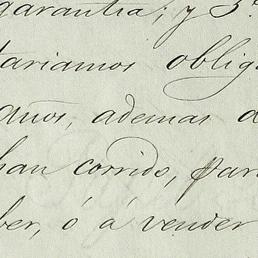 garantia; y 3º
tariamos oblig
años, ademas d
han corrido, par
ber, ó á vender